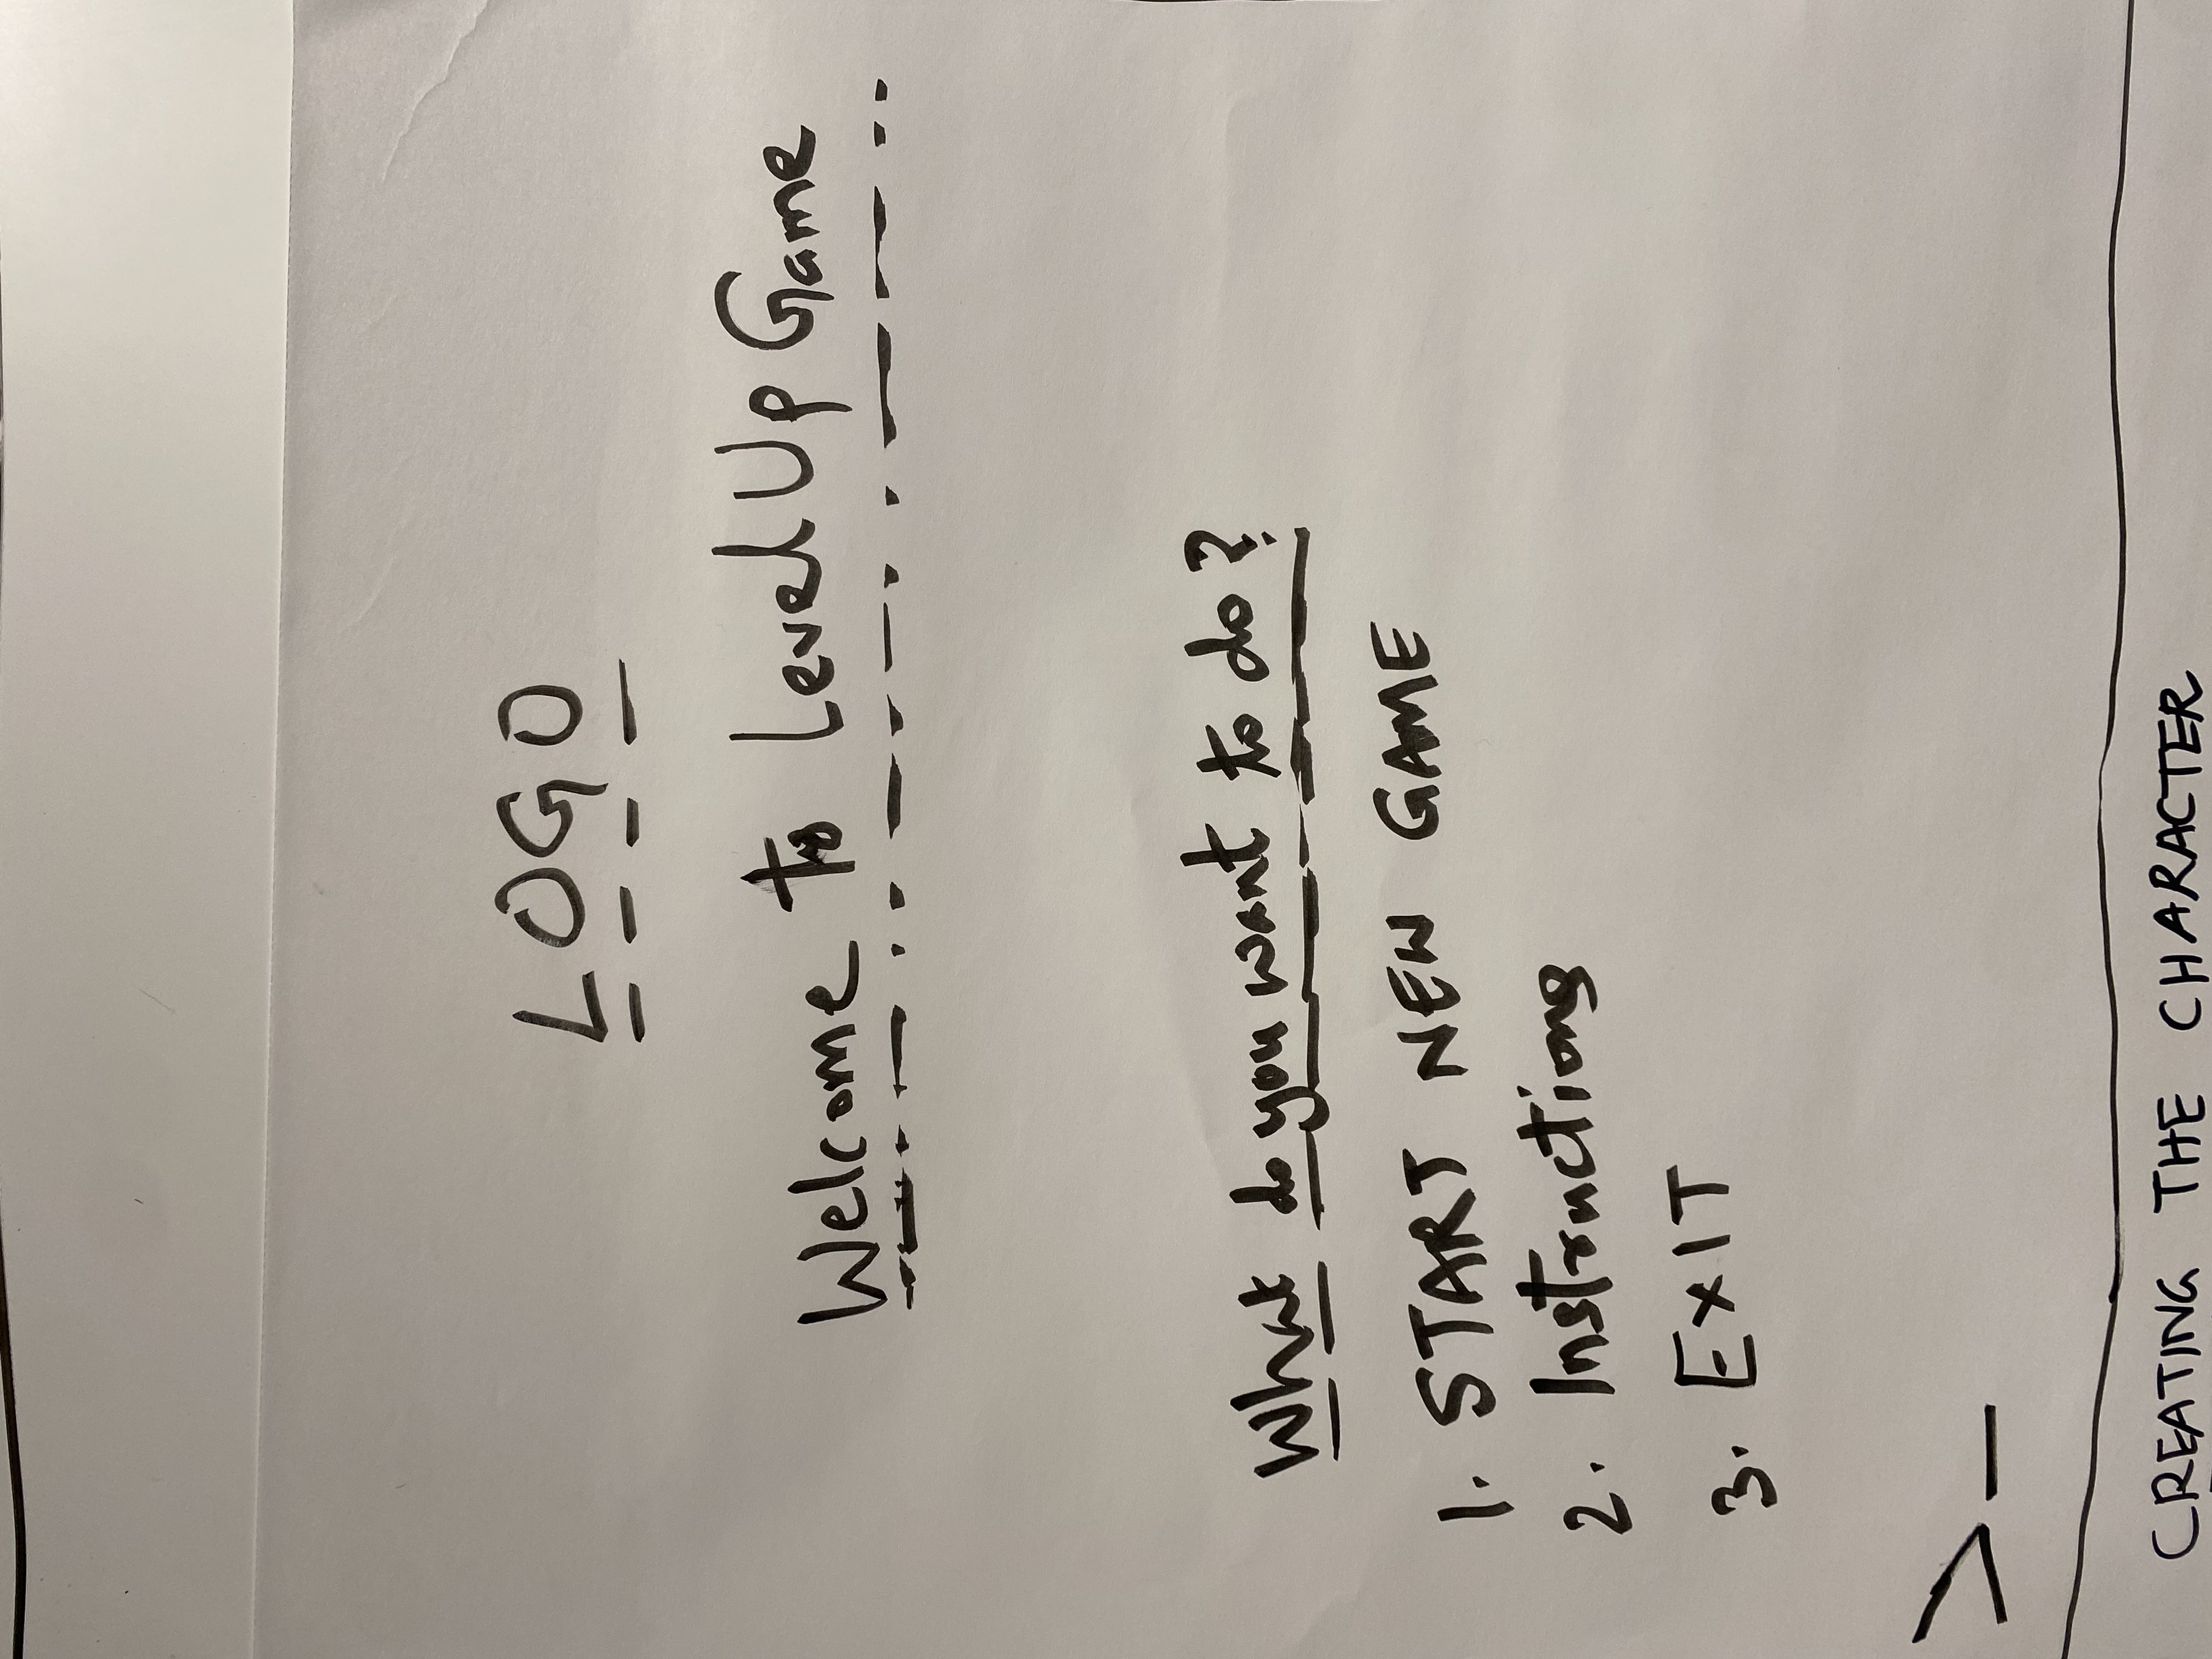 LOGO
Welcome to Level Up Game
What do you want to do?
1. START NEW GAME
2. Instructions
3. EXIT
>_
CREATING THE CHARACTER